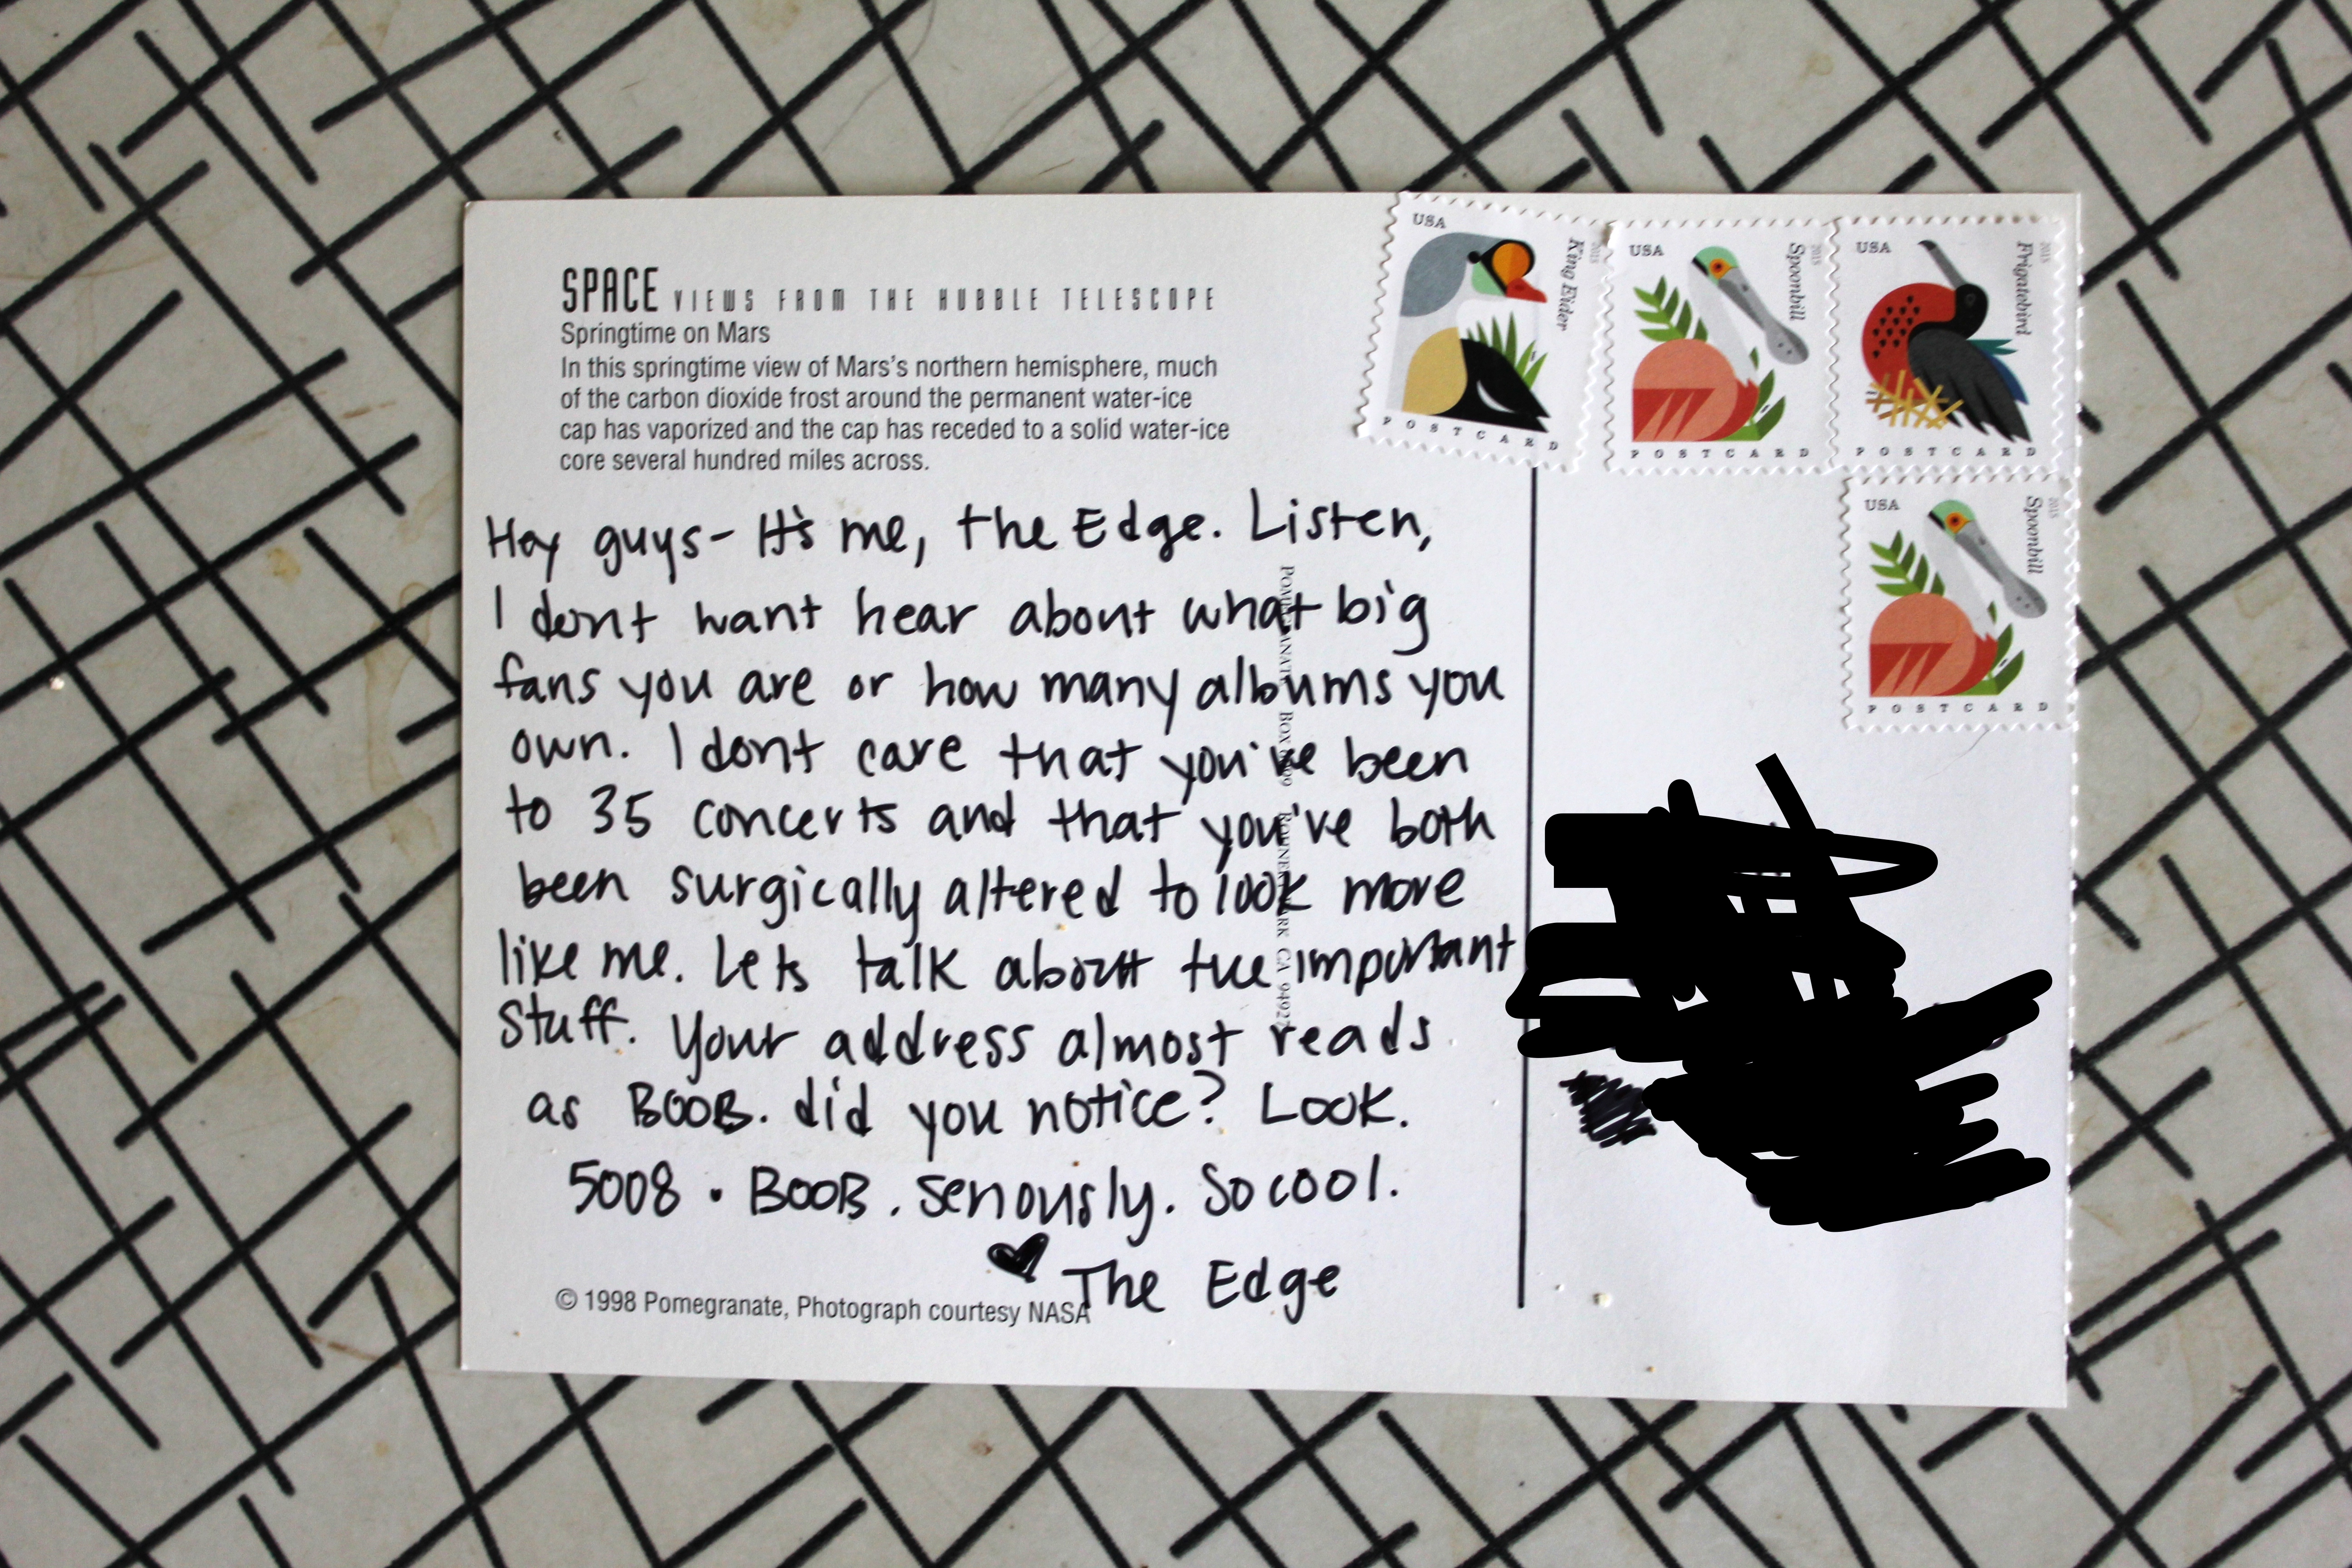 SPACE VIEWS FROM THE HUBBLE TELESCOPE
Springtime on Mars
In this springtime view of Mars's northern hemisphere, much
of the carbon dioxide frost around the permanent water-ice
cap has vaporized and the cap has receded to a solid water-ice
core several hundred miles across.
Hey guys- It's me, the Edge. Listen,
I dont want hear about what big
fans you are or how many albums you
own. I dont care that you've been
to 35 concerts and that you've both
been surgically altered to look more
like me. Lets talk about the important
stuff. Your address almost reads
as BOOB. did you notice? Look.
5008 . BOOB. Seriously. So cool.
♥ The Edge
© 1998 Pomegranate, Photograph courtesy NASA
POMEGRANATE BOX ROHNERT PARK CA 94927
USA
King Eider
2015
POSTCARD
USA
Spoonbill
2015
POSTCARD
USA
Frigatebird
2015
POSTCARD
USA
Spoonbill
2015
POSTCARD